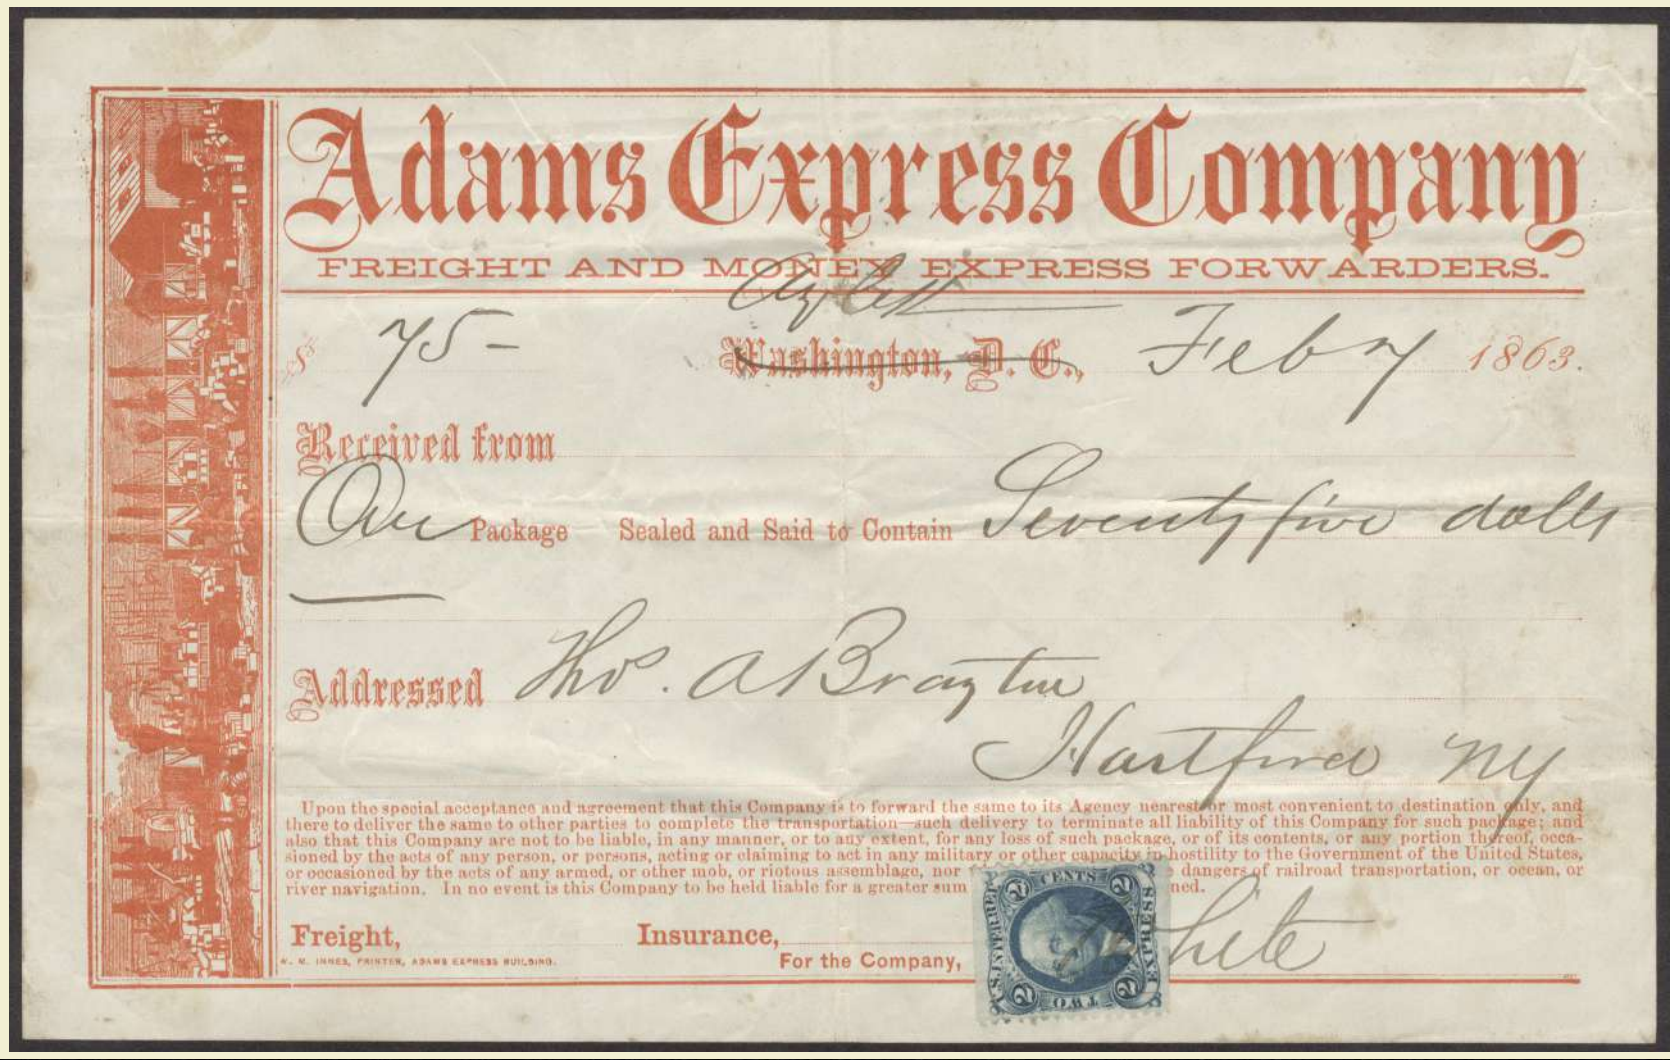 Adams Express Company
FREIGHT AND MONEY EXPRESS FORWARDERS.
$ 75- Washington, D. C., Feby 1863.
Received from
One Package Sealed and Said to Contain Seventy five dolls
Addressed Thos. A Brayton
Hartford NY
Upon the special acceptance and agreement that this Company is to forward the same to its Agency nearest or most convenient to destination only, and
there to deliver the same to other parties to complete the transportation—such delivery to terminate all liability of this Company for such package; and
also that this Company are not to be liable, in any manner, or to any extent, for any loss of such package, or of its contents, or any portion thereof, occa-
sioned by the acts of any person, or persons, acting or claiming to act in any military or other capacity in hostility to the Government of the United States,
or occasioned by the acts of any armed, or other mob, or riotous assemblage, nor dangers of railroad transportation, or ocean, or
river navigation. In no event is this Company to be held liable for a greater sum ned.
2 CENTS 2
U.S. INTER. REV. EXPRESS
2 TWO 2
Freight, Insurance,
For the Company, White
W. M. INNES, PRINTER, ADAMS EXPRESS BUILDING.